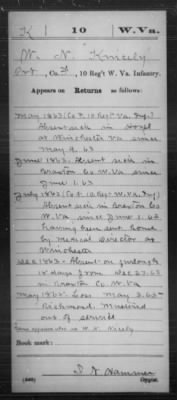 K | 10 | W. Va.
W. N. Knicely
Pvt, Co. F, 10 Reg't W. Va. Infantry.
Appears on Returns as follows:
May 1863 (Co F. 10 Reg W. Va. Inf.)
Absent sick in Hospl
at Winchester Va since
May 9. 63
June 1863. Absent sick in
Braxton Co W. Va since
June 1. 63
July 1863 (Co F. 10 Reg W. Va. Inf)
Absent sick in Braxton Co
W. Va since June 1. 63
having been sent home
by Medical Director at
Winchester
Dec 1863. Absent on furlough
15 days from Dec 27. 63
in Braxton Co W. Va
May 1865. Loss May 3. 65
Richmond. Mustered
out of service
Name appears also as W. N. Nicely
Book mark:
Hammer
Copyist.